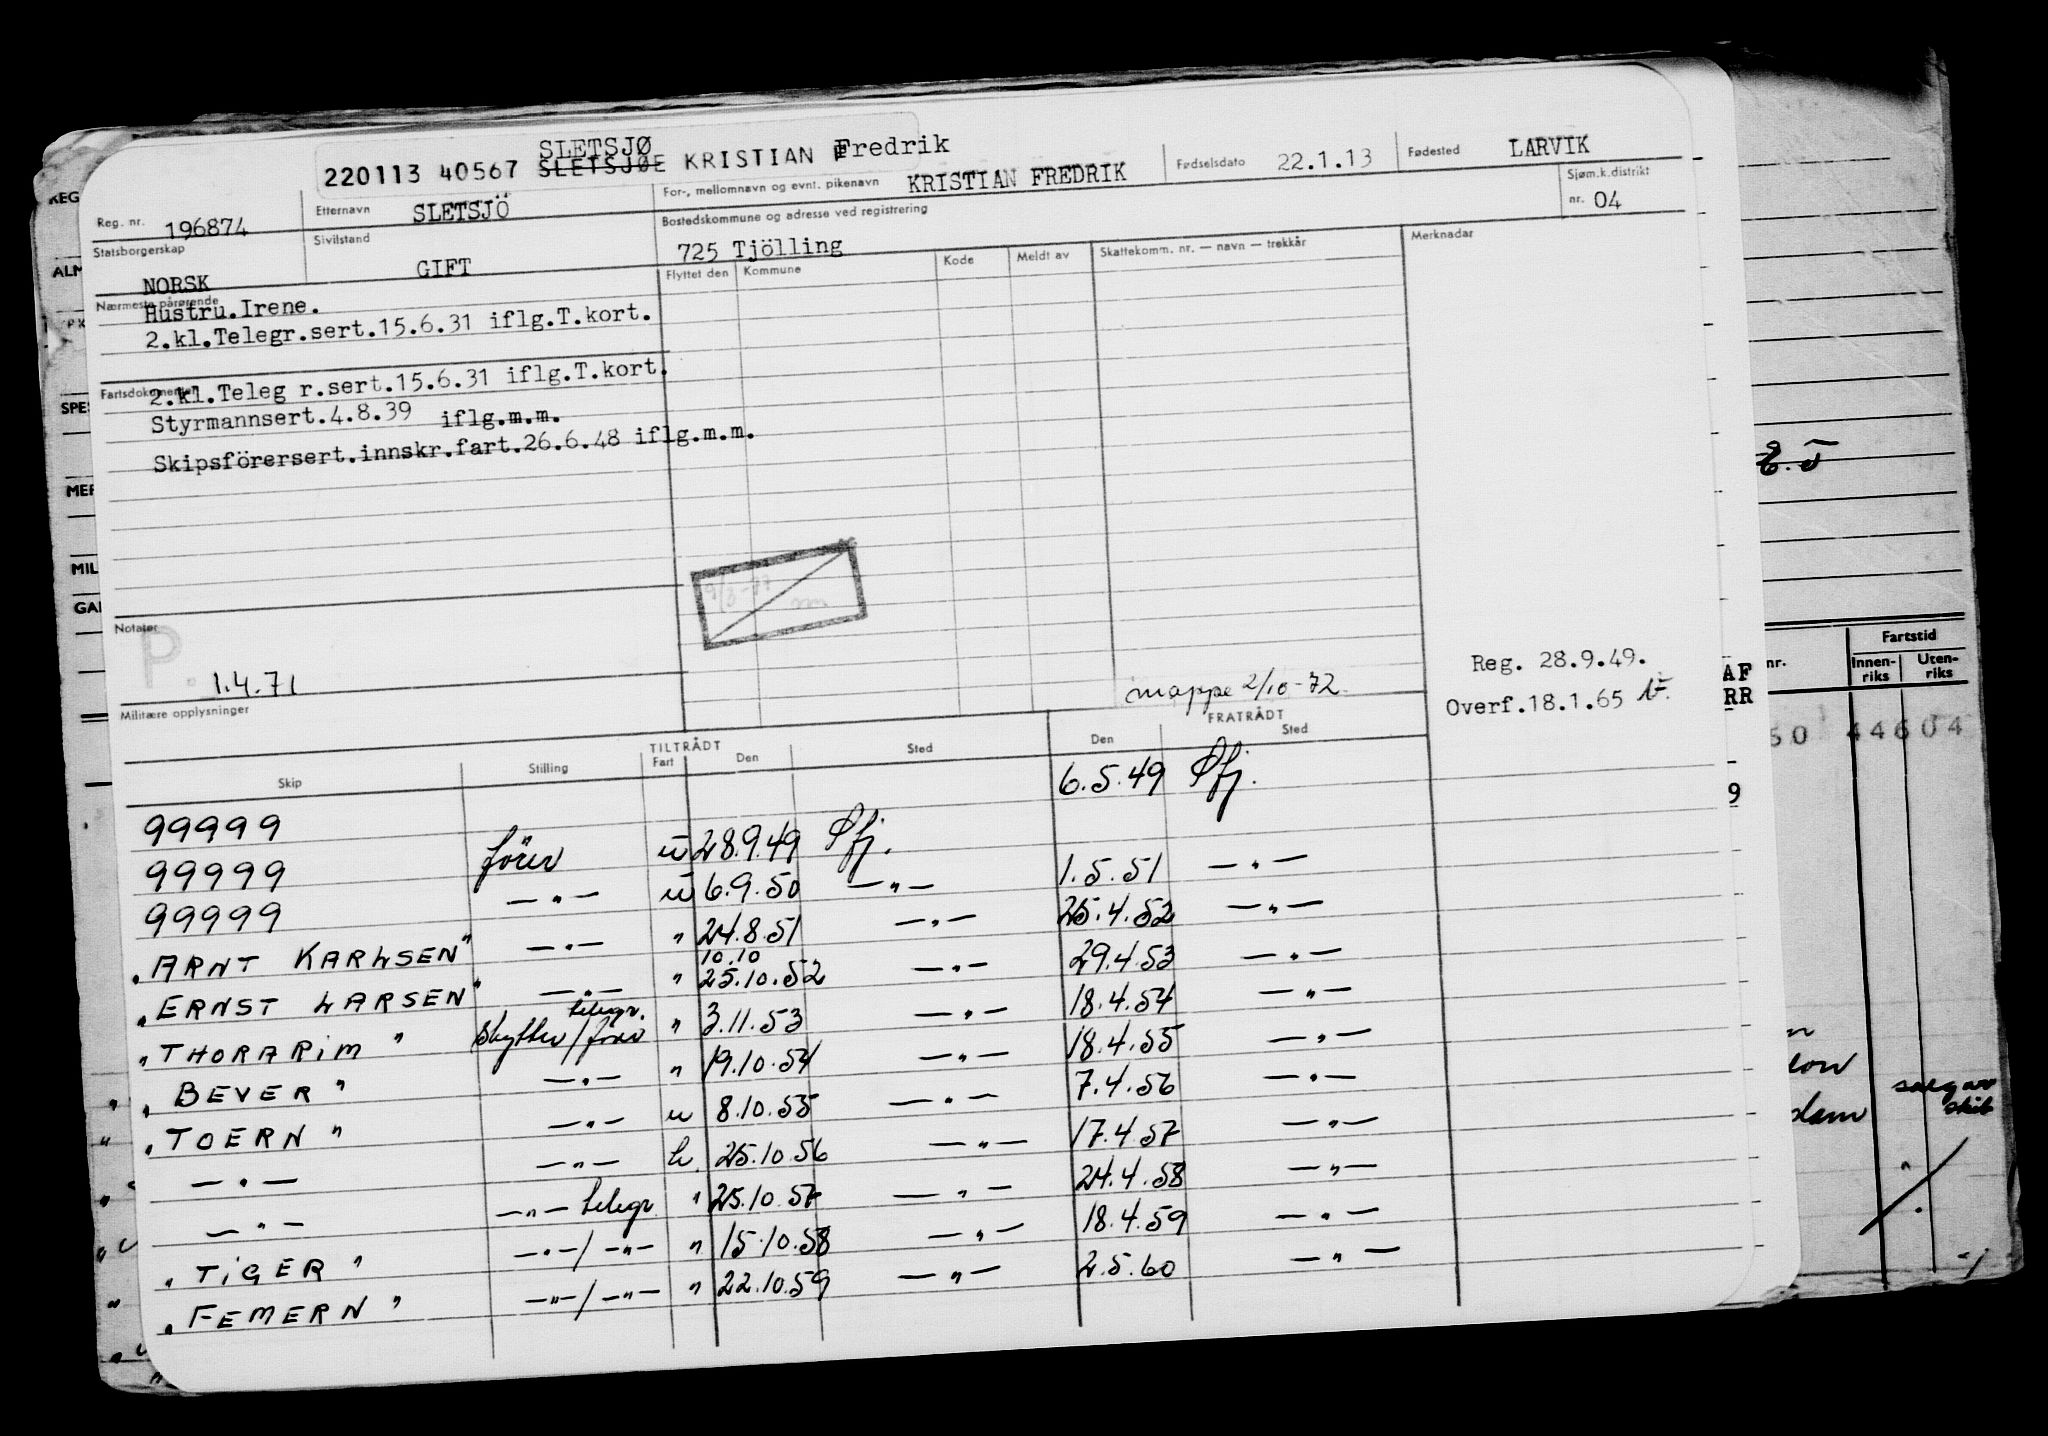 SLETSJØ
220113 40567 SLETSJØE KRISTIAN Fredrik
Reg. nr. 196874
Etternavn SLETSJÖ
For-, mellomnavn og evnt. pikenavn KRISTIAN FREDRIK
Fødselsdato 22.1.13
Fødested LARVIK
Statsborgerskap NORSK
Sivilstand GIFT
Bostedskommune og adresse ved registrering
725 Tjölling
Sjøm.k.distrikt
nr. 04
Nærmeste pårørende
Hustru.Irene.
2.kl.Telegr.sert.15.6.31 iflg.T.kort.
Flyttet den Kommune Kode Meldt av Skattekomm. nr. — navn — trekkår Merknader
Fartsdokumenter
2.kl.Teleg r.sert.15.6.31 iflg.T.kort.
Styrmannsert.4.8.39 iflg.m.m.
Skipsförersert.innskr.fart.26.6.48 iflg.m.m.
Notater
P.
1.4.71
mappe 2/10-72
Reg. 28.9.49.
Overf.18.1.65
Militære opplysninger
TILTRÅDT FRATRÅDT
Skip Stilling Fart Den Sted Den Sted
99999 6.5.49 Sfj.
99999 förer u 28.9.49 Sfj.
99999 —"— u 6.9.50 —"— 1.5.51 —"—
"ARNT KARLSEN" —"— " 24.8.51 —"— 25.4.52 —"—
10.10
"ERNST LARSEN" —"— " 25.10.52 —"— 29.4.53 —"—
telegr.
"THORARIM" Skytter/förer " 3.11.53 —"— 18.4.54 —"—
"BEVER" —"— " 19.10.54 —"— 18.4.55 —"—
"TOERN" —"— u 8.10.55 —"— 7.4.56 —"—
—"— —"— h 25.10.56 —"— 17.4.57 —"—
—"— —"— telegr. " 25.10.57 —"— 24.4.58 —"—
"TIGER" —"—/—"— " 15.10.58 —"— 18.4.59 —"—
"FEMERN" —"—/—"— " 22.10.59 —"— 2.5.60 —"—
REG
ALM
SPES
MER
MIL
GAR
Fartstid
nr. Innenriks Utenriks
AF
RR
50 44604
9